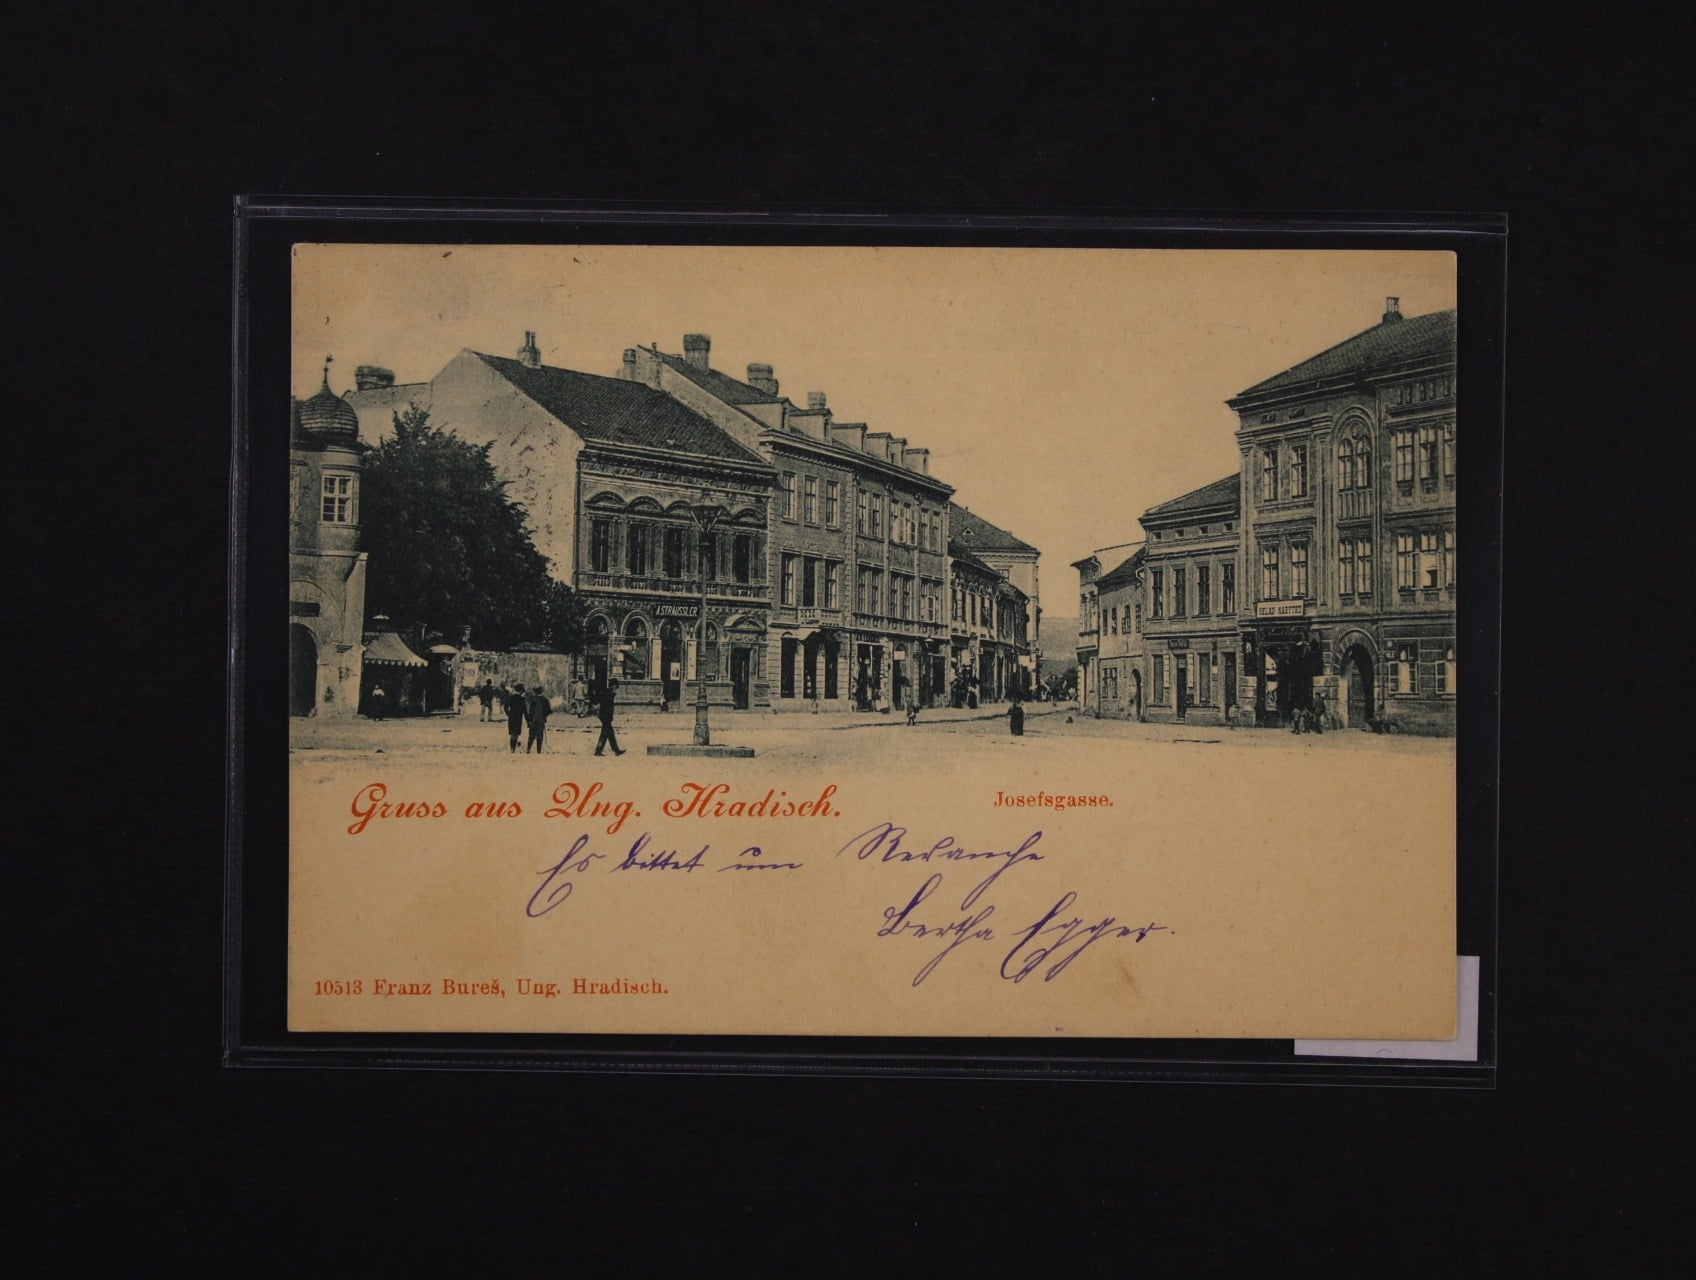 A. STRÄUSSLER
SKLAD NÁBYTKU
Gruss aus Ung. Hradisch.
Josefsgasse.
Es bittet um Revanche
Bertha Egger.
10513 Franz Bureš, Ung. Hradisch.